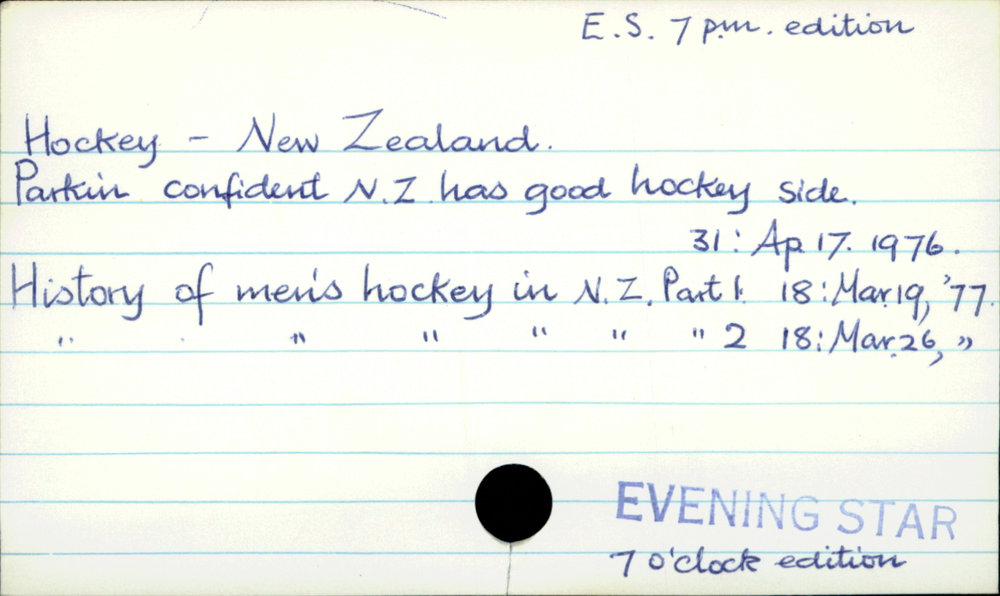 E.S. 7 p.m. edition
Hockey - New Zealand.
Parkin confident N.Z. has good hockey side.
31: Ap. 17. 1976.
History of men's hockey in N.Z. Part 1. 18: Mar. 19, '77.
" " " " " " 2 18: Mar. 26, "
EVENING STAR
7 o'clock edition